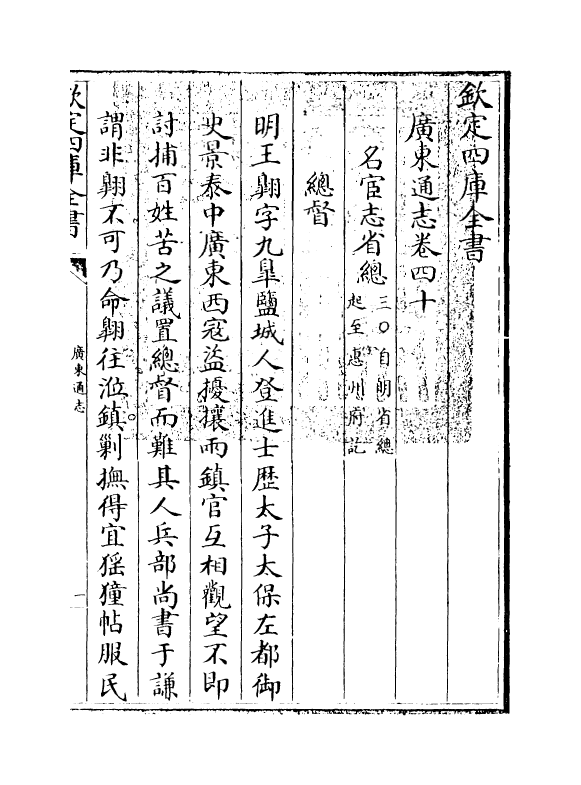 欽定四庫全書
廣東通志卷四十
名宦志省總三〇自明省總
起至惠州府訖
總督
明王翺字九臯鹽城人登進士歴太子太保左都御
史景泰中廣東西寇盗擾攘兩鎮官互相觀望不即
討捕百姓苦之議置總督而難其人兵部尚書于謙
謂非翺不可乃命翺往涖鎮剿撫得宜猺獞帖服民
欽定四庫全書
廣東通志
一